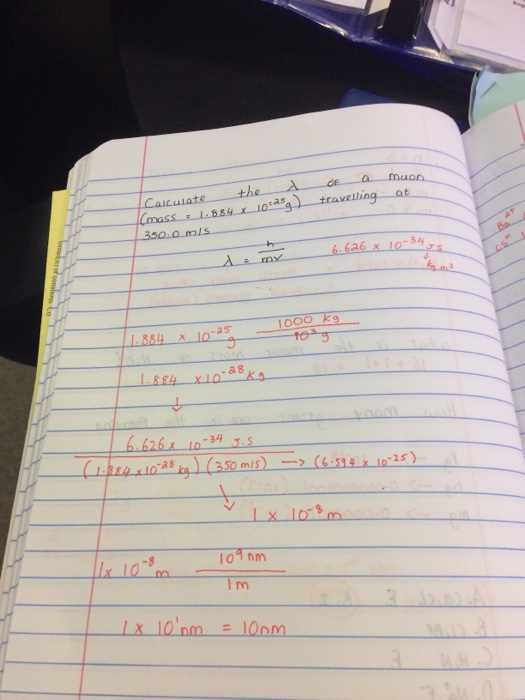 Calculate the λ of a muon
(mass = 1.884 x 10⁻²⁵g) travelling at
350.0 m/s
λ = h/mv
6.626 x 10⁻³⁴ J.S
1.884 x 10⁻²⁵ g 1000 kg / 10³ g
1.884 x 10⁻²⁸ kg
↓
6.626 x 10⁻³⁴ J.S
(1.884 x 10⁻²⁸ kg) (350 m/s) → (6.594 x 10⁻²⁵)
↓
1 x 10⁻⁸ m
1x 10⁻⁸ m 10⁹ nm / 1m
1 x 10¹ nm = 10nm